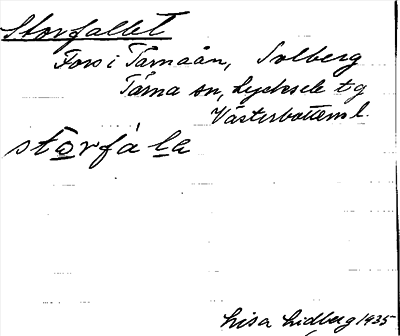 Storfallet
Fors i Tärnaån, Solberg
Tärna sn, Lycksele tg
Västerbottens l.
storfala
Lisa Lidberg 1935